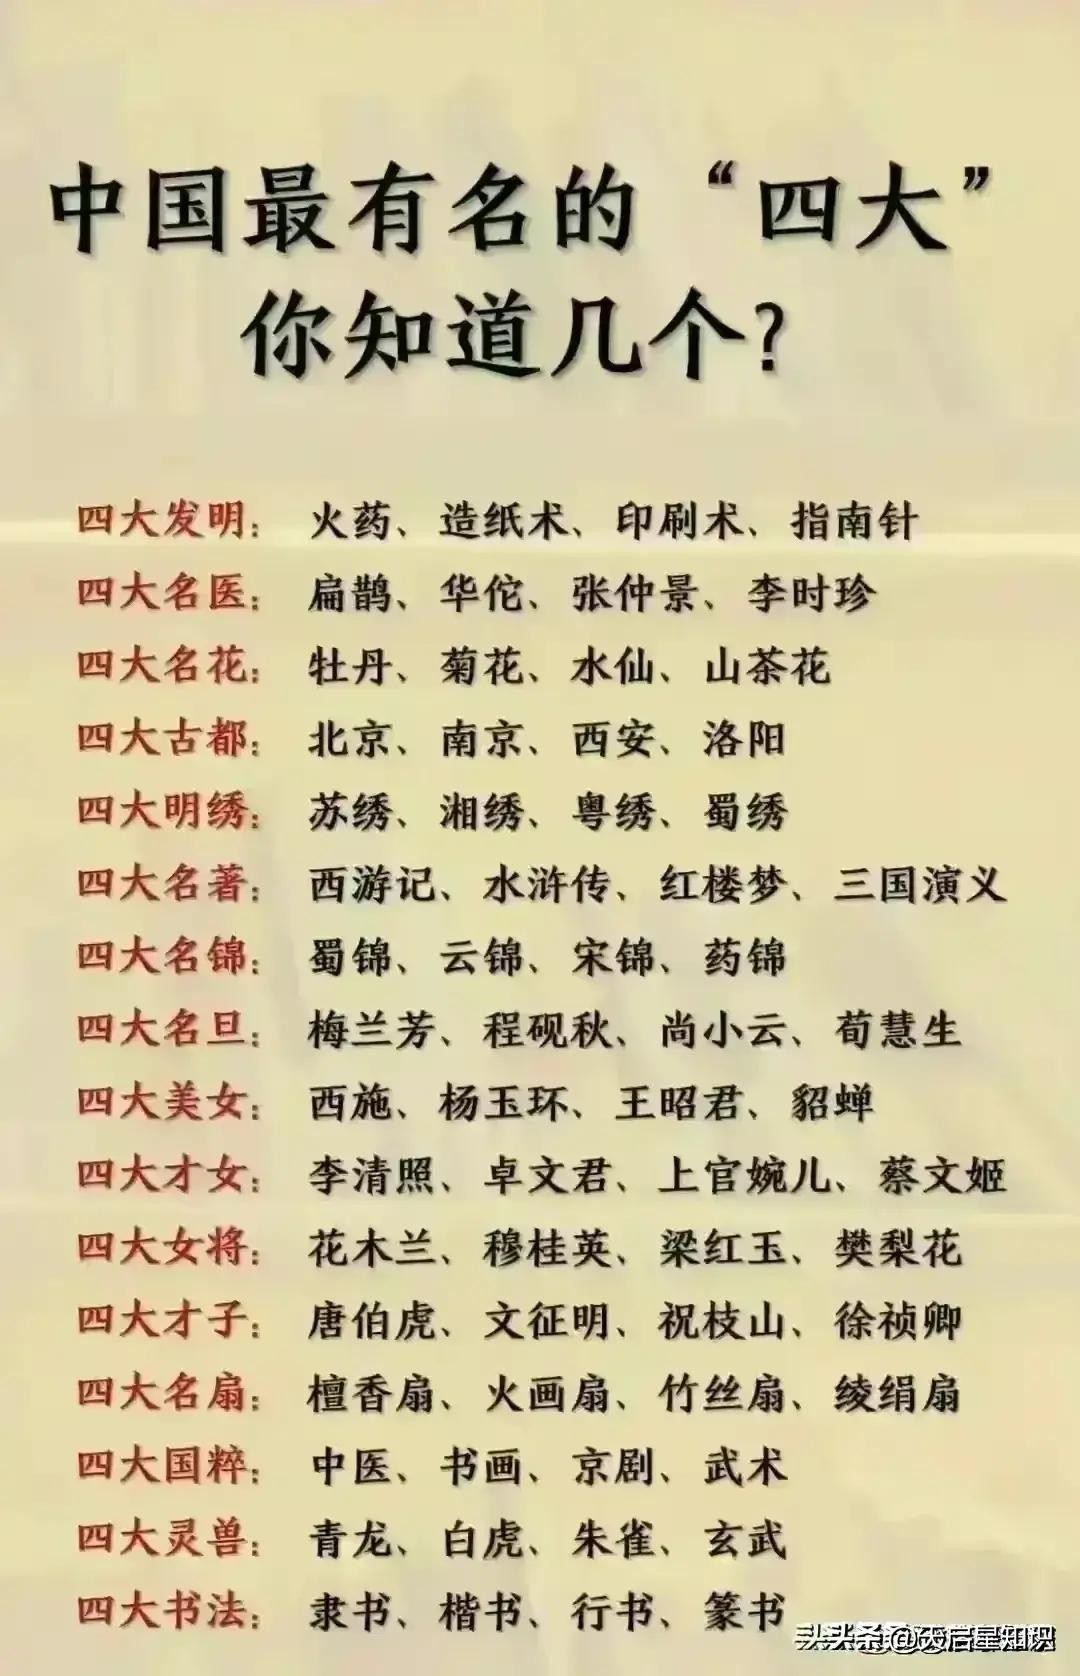 中国最有名的“四大”
你知道几个?
四大发明： 火药、造纸术、印刷术、指南针
四大名医： 扁鹊、华佗、张仲景、李时珍
四大名花： 牡丹、菊花、水仙、山茶花
四大古都： 北京、南京、西安、洛阳
四大明绣： 苏绣、湘绣、粤绣、蜀绣
四大名著： 西游记、水浒传、红楼梦、三国演义
四大名锦： 蜀锦、云锦、宋锦、药锦
四大名旦： 梅兰芳、程砚秋、尚小云、荀慧生
四大美女： 西施、杨玉环、王昭君、貂蝉
四大才女： 李清照、卓文君、上官婉儿、蔡文姬
四大女将： 花木兰、穆桂英、梁红玉、樊梨花
四大才子： 唐伯虎、文征明、祝枝山、徐祯卿
四大名扇： 檀香扇、火画扇、竹丝扇、绫绢扇
四大国粹： 中医、书画、京剧、武术
四大灵兽： 青龙、白虎、朱雀、玄武
四大书法： 隶书、楷书、行书、篆书